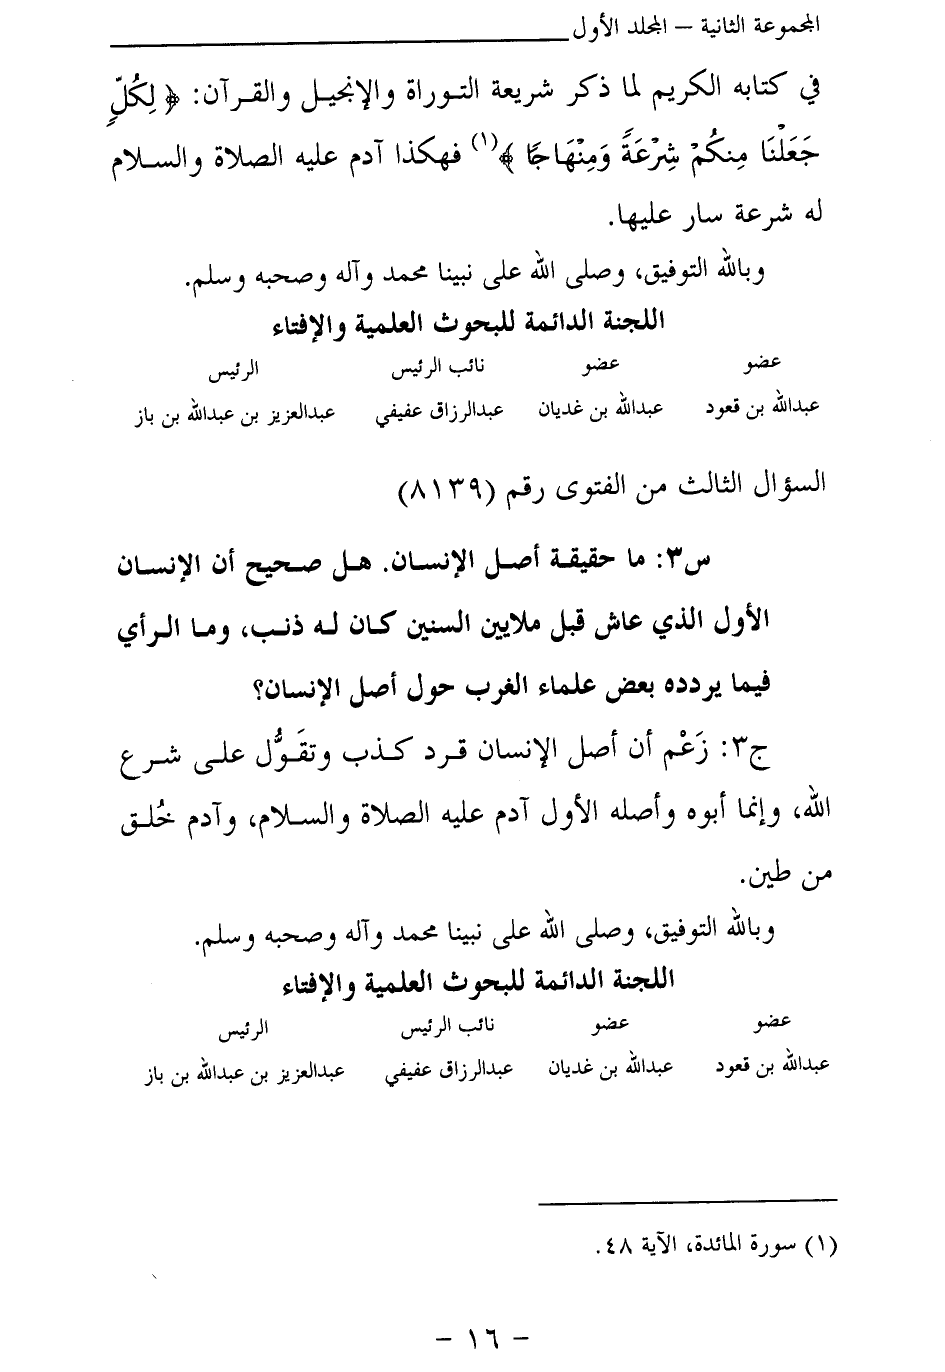 المجموعة الثانية – المجلد الأول
في كتابه الكريم لما ذكر شريعة التوراة والإنجيل والقرآن: ﴿ لِكُلٍّ
جَعَلْنَا مِنكُمْ شِرْعَةً وَمِنْهَاجًا ﴾(١) فهكذا آدم عليه الصلاة والسلام
له شرعة سار عليها.
وبالله التوفيق، وصلى الله على نبينا محمد وآله وصحبه وسلم.
اللجنة الدائمة للبحوث العلمية والإفتاء
عضو عضو نائب الرئيس الرئيس
عبدالله بن قعود عبدالله بن غديان عبدالرزاق عفيفي عبدالعزيز بن عبدالله بن باز
السؤال الثالث من الفتوى رقم (٨١٣٩)
س٣: ما حقيقة أصل الإنسان. هل صحيح أن الإنسان
الأول الذي عاش قبل ملايين السنين كان له ذنب، وما الرأي
فيما يردده بعض علماء الغرب حول أصل الإنسان؟
ج٣: زَعْم أن أصل الإنسان قرد كذب وتقَوُّل على شرع
الله، وإنما أبوه وأصله الأول آدم عليه الصلاة والسلام، وآدم خُلق
من طين.
وبالله التوفيق، وصلى الله على نبينا محمد وآله وصحبه وسلم.
اللجنة الدائمة للبحوث العلمية والإفتاء
عضو عضو نائب الرئيس الرئيس
عبدالله بن قعود عبدالله بن غديان عبدالرزاق عفيفي عبدالعزيز بن عبدالله بن باز
(١) سورة المائدة، الآية ٤٨.
– ١٦ –